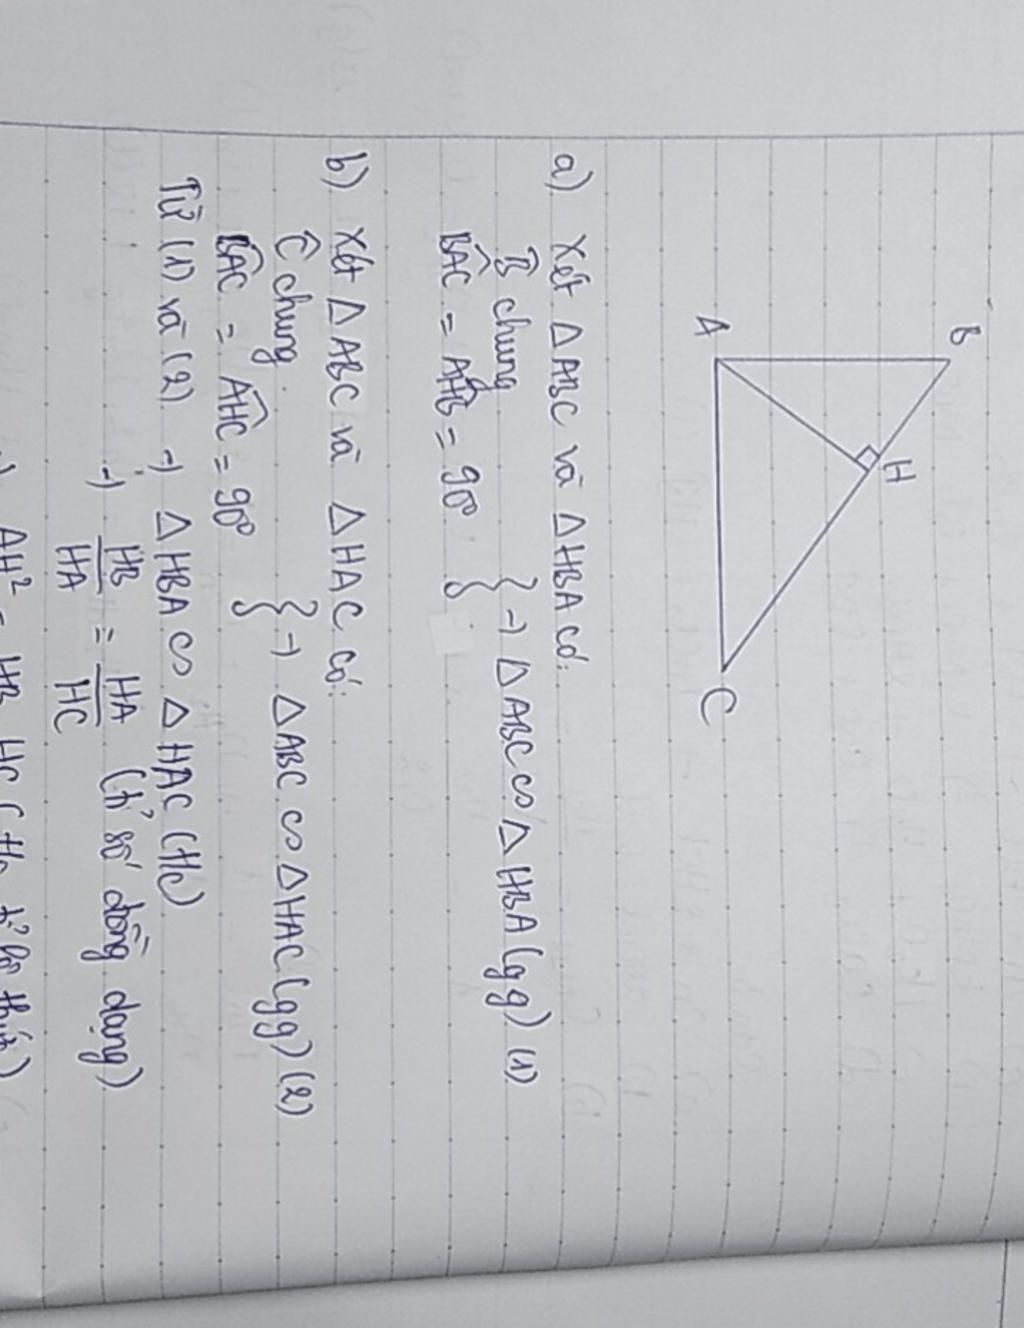 B
H
A
C
a) Xét △ABC và △HBA có:
B̂ chung
BAĈ = AHB̂ = 90° } → △ABC ∽ △HBA (gg) (1)
b) Xét △ABC và △HAC có:
Ĉ chung
BAĈ = AHĈ = 90° } → △ABC ∽ △HAC (gg) (2)
Từ (1) và (2) → △HBA ∽ △HAC (t/c)
→ HB/HA = HA/HC (tỉ số đồng dạng)
AH² = HB. HC (